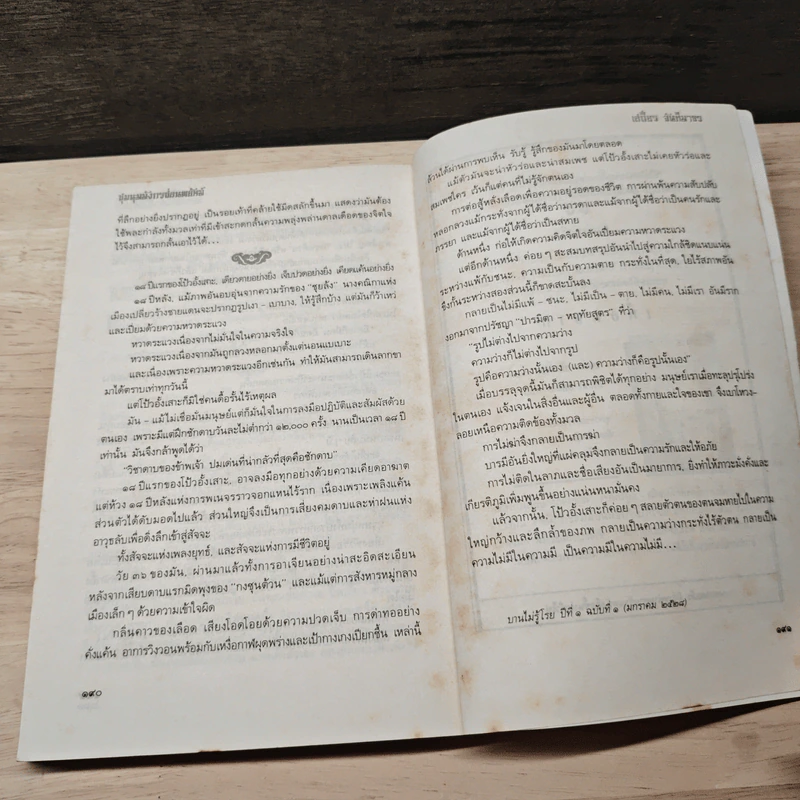 ชุมนุมมังกรซ่อนพยัคฆ์
ที่ลึกอย่างยิ่งปรากฏอยู่ เป็นรอยเท้าที่คล้ายใช้มีดสลักขึ้นมา แสดงว่ามันต้อง
ใช้พละกำลังทั้งมวลเท่าที่มีเข้าสะกดกลั้นความพลุ่งพล่านดาลเดือดของจิตใจ
ไว้จึงสามารถกลั้นเอาไว้ได้...
๑๘ ปีแรกของโป้วอั้งเสาะ, เดียวดายอย่างยิ่ง เจ็บปวดอย่างยิ่ง เคียดแค้นอย่างยิ่ง
๑๘ ปีหลัง, แม้ภาพอันอบอุ่นจากความรักของ "ชุยลั้ง" นางคณิกาแห่ง
เมืองเปลี่ยวร้างชายแดนจะปรากฏรูปเงา - เบาบาง, ให้รู้สึกบ้าง แต่มันก็ร้าเหว่
และเปี่ยมด้วยความหวาดระแวง
หวาดระแวงเนื่องจากไม่มั่นใจในความจริงใจ
หวาดระแวงเนื่องจากมันถูกลวงหลอกมาตั้งแต่นอนแบเบาะ
และเนื่องเพราะความหวาดระแวงอีกเช่นกัน ทำให้มันสามารถเดินลากขา
มาได้ตราบเท่าทุกวันนี้
แต่โป้วอั้งเสาะก็มิใช่คนดื้อรั้นไร้เหตุผล
มัน - แม้ไม่เชื่อมั่นมนุษย์แต่ก็มั่นใจในการลงมือปฏิบัติและสัมผัสด้วย
ตนเอง เพราะมีแต่ฝึกชักดาบวันละไม่ต่ำกว่า ๑๒,๐๐๐ ครั้ง นานเป็นเวลา ๑๘ ปี
เท่านั้น มันจึงกล้าพูดได้ว่า
"วิชาดาบของข้าพเจ้า ปมเด่นที่น่ากลัวที่สุดคือชักดาบ"
๑๘ ปีแรกของโป้วอั้งเสาะ, อาจลงมือทุกอย่างด้วยความเคียดอาฆาต
แต่ห้วง ๑๘ ปีหลังแห่งการพเนจรร่าวจอกแหนไร้ราก เนื่องเพราะเพลิงแค้น
ส่วนตัวได้ดับมอดไปแล้ว ส่วนใหญ่จึงเป็นการเสี่ยงคมดาบและห่าฝนแห่ง
อาวุธลับเพื่อดิ่งลึกเข้าสู่สัจจะ
ทั้งสัจจะแห่งเพลงยุทธ์, และสัจจะแห่งการมีชีวิตอยู่
วัย ๓๖ ของมัน, ผ่านมาแล้วทั้งการอาเจียนอย่างน่าสะอิดสะเอียน
หลังจากเสียบดาบแรกมิดพุงของ "กงซุนต้วน" และแม้แต่การสังหารหมู่กลาง
เมืองเล็ก ๆ ด้วยความเข้าใจผิด
กลิ่นคาวของเลือด เสียงโอดโอยด้วยความปวดเจ็บ การด่าทออย่าง
คั่งแค้น อาการวิงวอนพร้อมกับเหงื่อกาฬผุดพร่างและเป้ากางเกงเปียกชื้น เหล่านี้
๑๙๐
เสถียร จันทิมาธร
ล้วนได้ผ่านการพบเห็น รับรู้ รู้สึกของมันมาโดยตลอด
แม้ตัวมันจะน่าหัวร่อและน่าสมเพช แต่โป้วอั้งเสาะไม่เคยหัวร่อและ
สมเพชใคร เว้นก็แต่คนที่ไม่รู้จักตนเอง
การต่อสู้หลั่งเลือดเพื่อความอยู่รอดของชีวิต การผ่านพ้นความสับปลับ
หลอกลวงแม้กระทั่งจากผู้ได้ชื่อว่ามารดาและแม้จากผู้ได้ชื่อว่าเป็นคนรักและ
ภรรยา และแม้จากผู้ได้ชื่อว่าเป็นสหาย
ด้านหนึ่ง ก่อให้เกิดความคิดจิตใจอันเปี่ยมความหวาดระแวง
แต่อีกด้านหนึ่ง ค่อย ๆ สะสมบทสรุปอันนำไปสู่ความใกล้ชิดแนบแน่น
ระหว่างแพ้กับชนะ, ความเป็นกับความตาย กระทั่งในที่สุด, ใยไร้สภาพอัน
ขึงกั้นระหว่างสองส่วนนี้ก็ขาดสะบั้นลง
กลายเป็นไม่มีแพ้ - ชนะ, ไม่มีเป็น - ตาย, ไม่มีคน, ไม่มีเรา อันมีราก
งอกมาจากปรัชญา "ปารมิตา - หฤทัยสูตร" ที่ว่า
"รูปไม่ต่างไปจากความว่าง
ความว่างก็ไม่ต่างไปจากรูป
รูปคือความว่างนั้นเอง (และ) ความว่างก็คือรูปนั้นเอง"
เมื่อบรรลุจุดนี้มันก็สามารถพิชิตได้ทุกอย่าง มนุษย์เราเมื่อทะลุปรุโปร่ง
ในตนเอง แจ้งเจนในสิ่งอื่นและผู้อื่น ตลอดทั้งกายและใจของเขา จึงเบาโหวง-
ลอยเหนือความติดข้องทั้งมวล
การไม่ฆ่าจึงกลายเป็นการฆ่า
บารมีอันยิ่งใหญ่ที่แผ่คลุมจึงกลายเป็นความรักและให้อภัย
การไม่ติดในลาภและชื่อเสียงอันเป็นมายาการ, ยิ่งทำให้ภาวะมั่งคั่งและ
เกียรติภูมิเพิ่มพูนขึ้นอย่างแน่นหนามั่นคง
แล้วจากนั้น, โป้วอั้งเสาะก็ค่อย ๆ สลายตัวตนของตนจมหายไปในความ
ใหญ่กว้างและลึกล้ำของภพ กลายเป็นความว่างกระทั่งไร้ตัวตน กลายเป็น
ความไม่มีในความมี เป็นความมีในความไม่มี...
บานไม่รู้โรย ปีที่ ๑ ฉบับที่ ๑ (มกราคม ๒๕๒๘)
๑๙๑